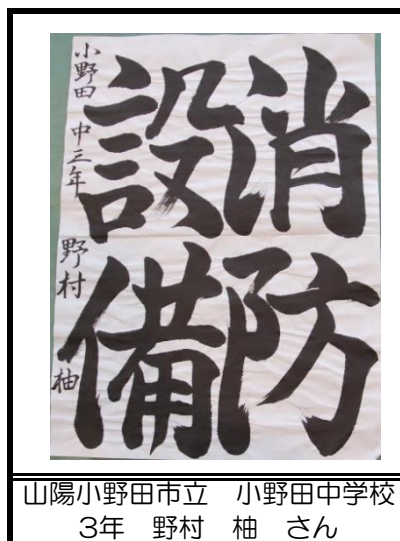 消防
設備
小野田 中三年 野村 柚
山陽小野田市立　小野田中学校
3年　野村　柚　さん